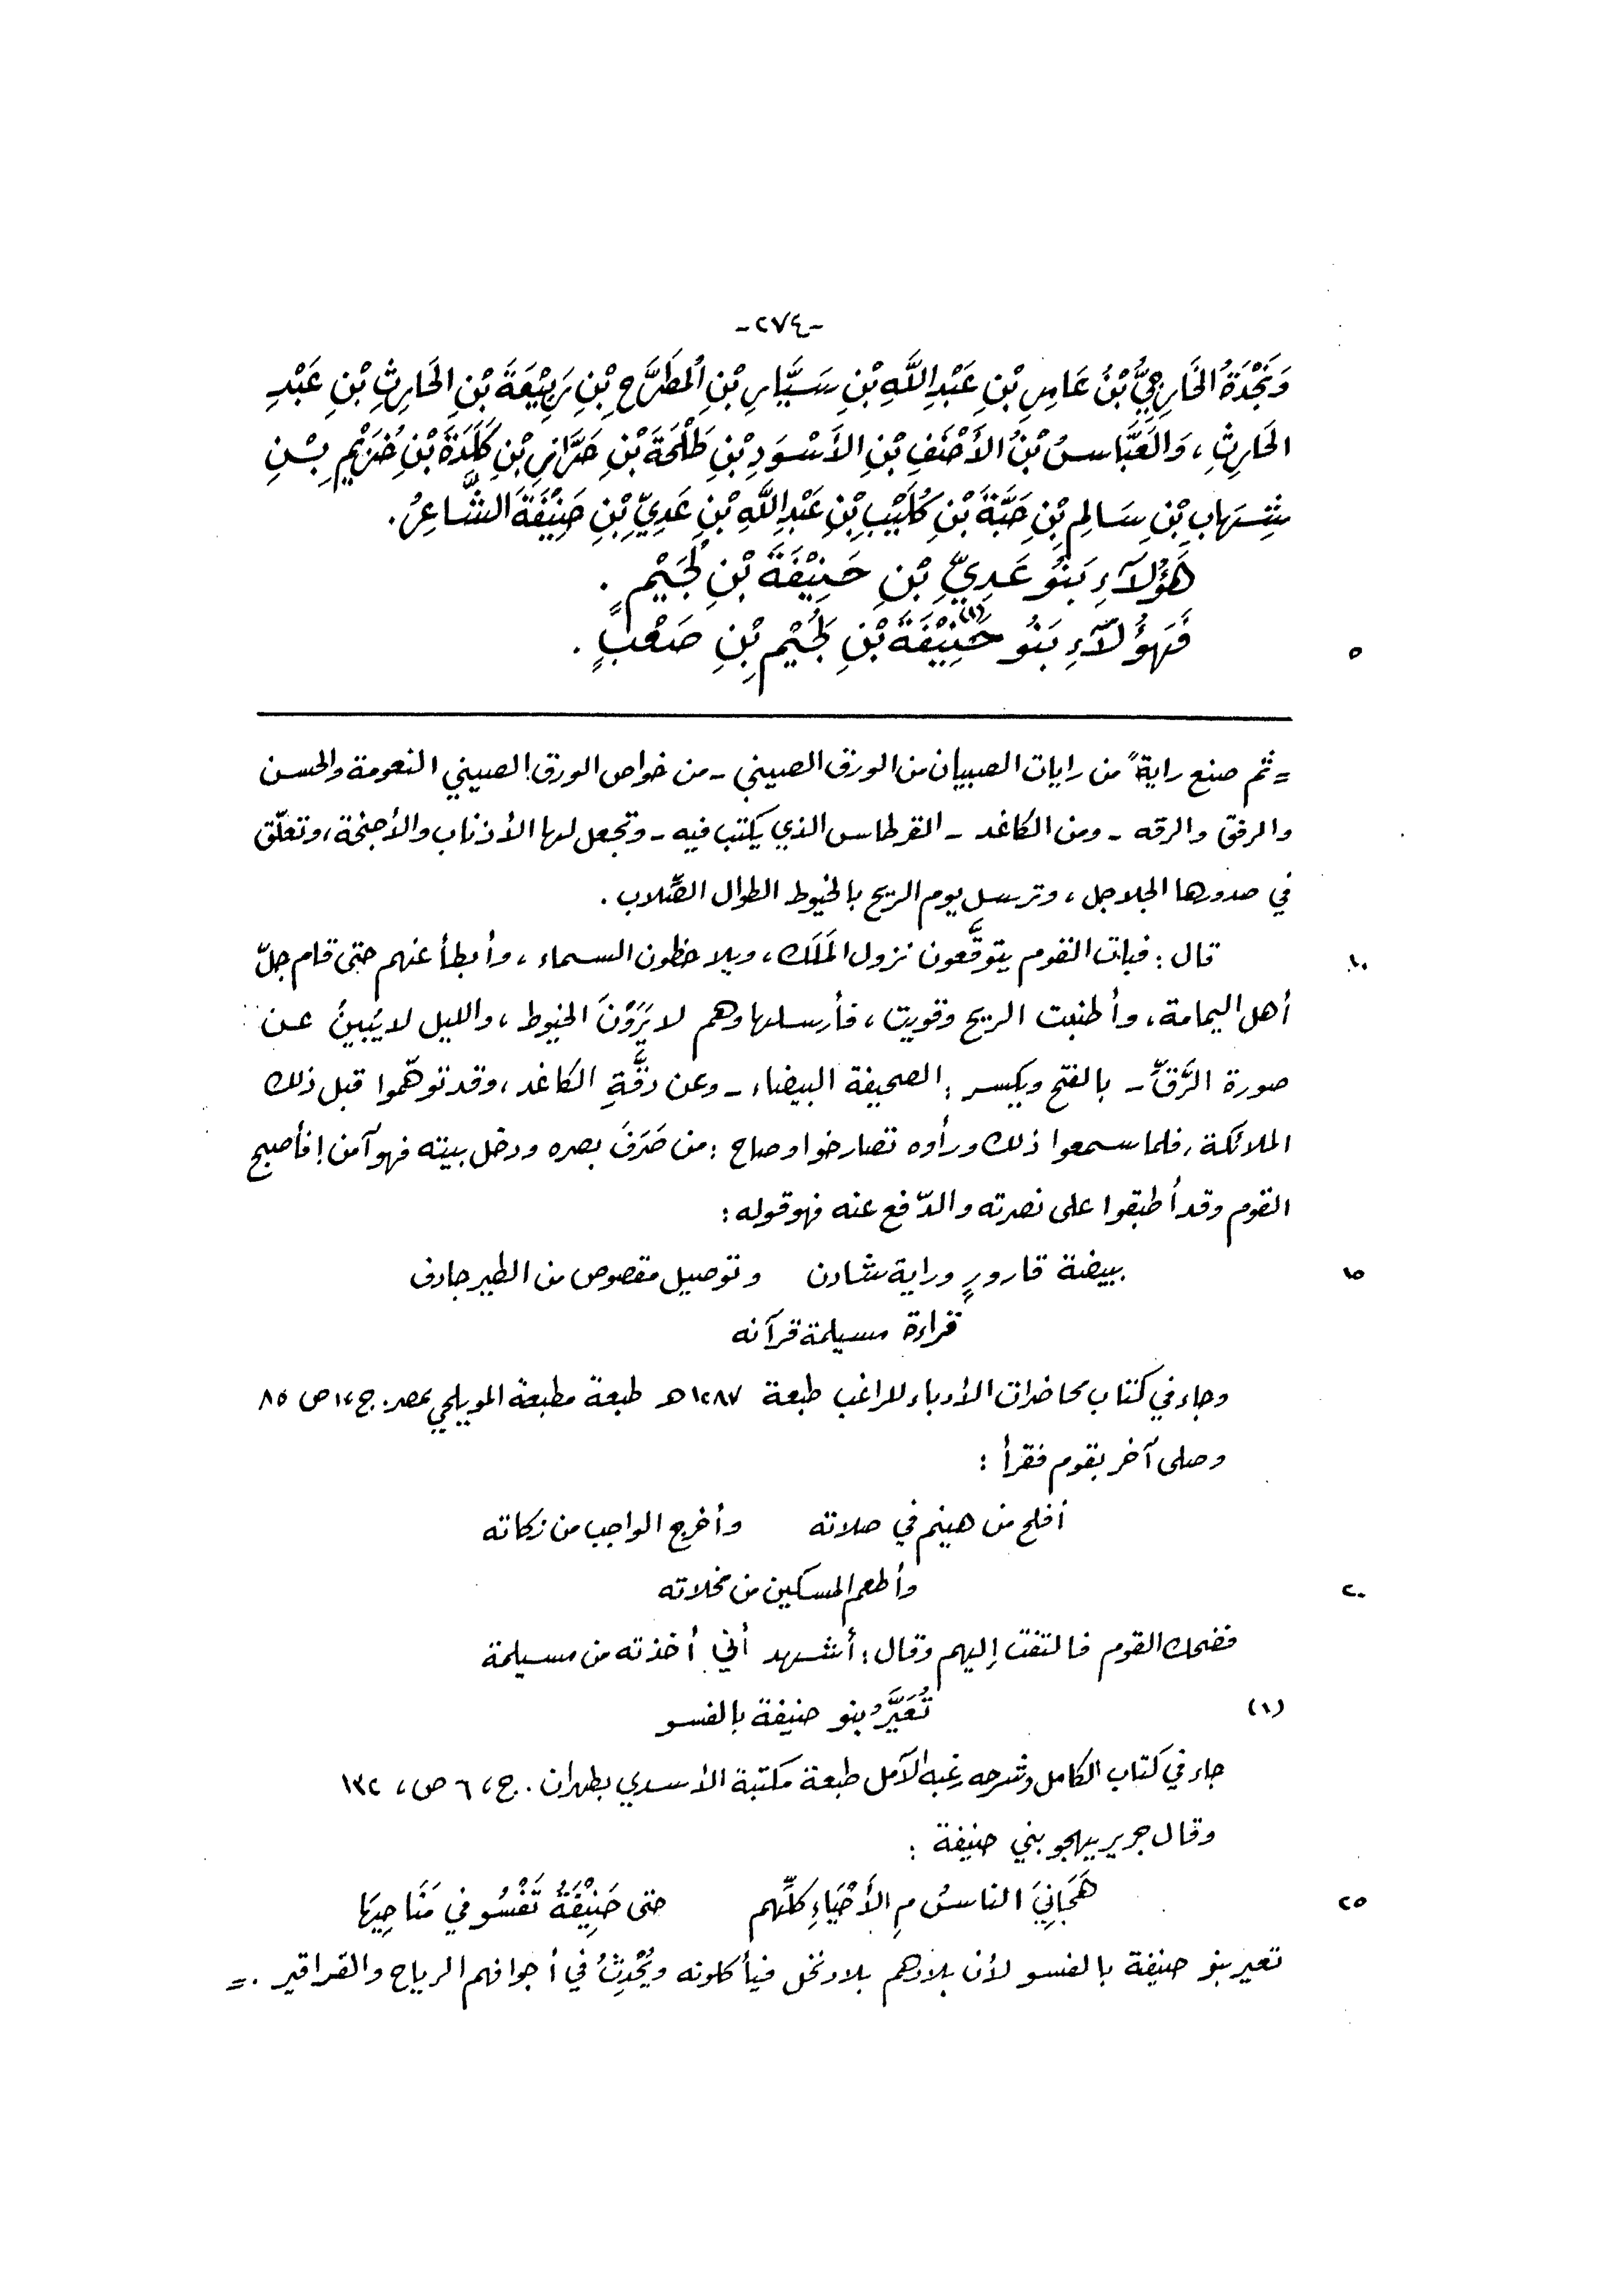 -٢٧٤-
وَنَجْدَةُ الخَارِجِيُّ بْنُ عَامِرِ بْنِ عَبْدِ اللَّهِ بْنِ سَيَّارِ بْنِ المُطَرَّحِ بْنِ رَبِيْعَةَ بْنِ الحَارِثِ بْنِ عَبْدِ
الحَارِثِ، وَالعَبَّاسُ بْنُ الأَحْنَفِ بْنِ الأَسْوَدِ بْنِ طَلْحَةَ بْنِ حَرَّانِ بْنِ كَلَدَةَ بْنِ خُزَيْمِ بْنِ
شِهَابِ بْنِ سَالِمِ بْنِ حَبَّةَ بْنِ كُلَيْبِ بْنِ عَبْدِ اللَّهِ بْنِ عَدِيِّ بْنِ حَنِيْفَةَ الشَّاعِرُ.
هَؤُلاَءِ بَنُو عَدِيِّ بْنِ حَنِيْفَةَ بْنِ لُجَيْمٍ.
٥ فَهَؤُلاَءِ بَنُو حَنِيْفَةَ(١) بْنِ لُجَيْمِ بْنِ صَعْبٍ.
= ثم صنع رايةً من رايات الصبيان من الورق الصيني - من خواص الورق الصيني النعومة والحسن
والرفق والرقه - ومن الكاغد - القرطاس الذي يكتب فيه - وتجعل لها الأذناب والأجنحة، وتعلّق
في صدورها الجلاجل، وترسل يوم الريح بالخيوط الطوال الصِّلاب.
١٠ قال: فبات القوم يتوقَّعون نزول المَلَك، ويلاحظون السماء، وأبطأ عنهم حتى قام جلّ
أهل اليمامة، وأطنبت الريح وقويت، فأرسلها وهم لا يَرَوْنَ الخيوط، والليل لا يَبينُ عن
صورة الرَّقِّ - بالفتح ويكسر: الصحيفة البيضاء - وعن دقَّةِ الكاغد، وقد توهّموا قبل ذلك
الملائكة، فلما سمعوا ذلك ورأوه تصارخوا وصاح: من صَرَفَ بصره ودخل بيته فهو آمن! فأصبح
القوم وقد أطبقوا على نصرته والدّفع عنه فهو قوله:
١٥ ببيضة قارورٍ وراية شادن    وتوصيل مقصوص من الطير جادف
قراءة مسيلمة قرآنه
وجاء في كتاب محاضرات الأدباء للراغب طبعة ١٢٨٧هـ طبعة مطبعة المويلحي بمصر. ج،١ ص ٨٥
وصلى آخر بقوم فقرأ:
أفلح من هينم في صلاته    وأخرج الواجب من زكاته
٢٠ وأطعم المسكين من مخلاته
فضحك القوم فالتفت إليهم وقال: أشهد أني أخذته من مسيلمة
(١) تُعَيَّرُ بنو حنيفة بالفسو
جاء في كتاب الكامل وشرحه رغبه الآمل طبعة مكتبة الأسدي بطهران. ج، ٦ ص، ١٣٢
وقال جرير يهجو بني حنيفة:
٢٥ هَجَانِيَ الناسُ مِ الأَحْيَاءِ كلِّهم    حتى حَنِيْفَةُ تَفْسُو في مَنَاحِيهَا
تعير بنو حنيفة بالفسو لأن بلادهم بلاد نخل فيأكلونه ويُحْدِثُ في أجوافهم الرياح والقراقير. =